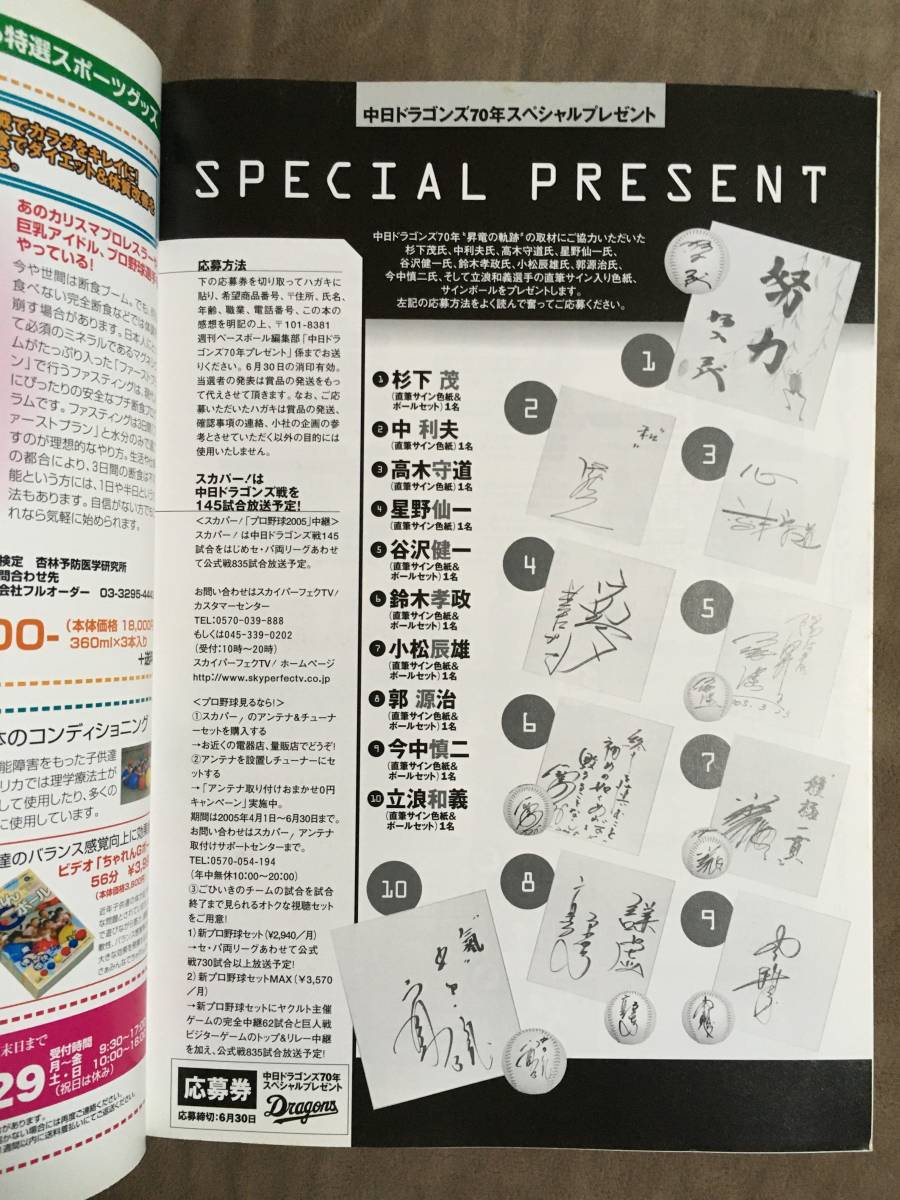 特選スポーツグッズ
でカラダをキレイに!
でダイエット&体質改善を
る。
あのカリスマプロレスラー
巨乳アイドル、プロ野球選手
やっている!
今や世間は断食ブーム。でも
食べない完全断食などでは体調
崩す場合があります。日本人に
て必須のミネラルであるマグネ
ムがたっぷり入った「ファースト
ン」で行うファスティングは、
にぴったりの安全なプチ断食プロ
ラムです。ファスティングは3日間
アーストプラン」と水分のみで過
すのが理想的なやり方。生活や仕事
の都合により、3日間の断食は
能という方には、1日や半日という
法もあります。自信がない方でも
れなら気軽に始められます。
検定 杏林予防医学研究所
問合わせ先
会社フルオーダー 03-3295-444
00-
(本体価格 18,000円
360ml×3本入り
+送料
本のコンディショニング
能障害をもった子供達
リカでは理学療法士が
して使用したり、多くの
に使用しています。
達のバランス感覚向上に効果
ビデオ「ちゃれんGボー
56分 ¥3,9
末日まで
29
受付時間
月~金 9:30~17:00
土・日 10:00~16:00
(祝日は休み)
があります。
かない場合には再度ご連絡ください。
週間以内に送料着払いにてご返送ください。
中日ドラゴンズ70年スペシャルプレゼント
SPECIAL PRESENT
中日ドラゴンズ70年“昇竜の軌跡”の取材にご協力いただいた
杉下茂氏、中利夫氏、高木守道氏、星野仙一氏、
谷沢健一氏、鈴木孝政氏、小松辰雄氏、郭源治氏、
今中慎二氏、そして立浪和義選手の直筆サイン入り色紙、
サインボールをプレゼントします。
左記の応募方法をよく読んで奮ってご応募ください。
応募方法
下の応募券を切り取ってハガキに
貼り、希望商品番号、〒住所、氏名、
年齢、職業、電話番号、この本の
感想を明記の上、〒101-8381
週刊ベースボール編集部「中日ド
ラゴンズ70年プレゼント」係までお送
りください。6月30日の消印有効。
当選者の発表は賞品の発送をもっ
て代えさせて頂きます。なお、ご応
募いただいたハガキは賞品の発送、
確認事項の連絡、小社の企画の参
考とさせていただく以外の目的には
使用いたしません。
スカパー!は
中日ドラゴンズ戦を
145試合放送予定!
<スカパー!「プロ野球2005」中継>
スカパー!は中日ドラゴンズ戦145
試合をはじめセ・パ両リーグあわせ
て公式戦835試合放送予定。
お問い合わせはスカイパーフェクTV!
カスタマーセンター
TEL:0570-039-888
もしくは045-339-0202
(受付:10時~20時)
スカイパーフェクTV! ホームページ
http://www.skyperfectv.co.jp
<プロ野球見るなら!>
①スカパー!のアンテナ&チューナ
ーセットを購入する
→お近くの電器店、量販店でどうぞ!
②アンテナを設置しチューナーにセ
ットする
→「アンテナ取付けおまかせ0円
キャンペーン」実施中。
期間は2005年4月1日~6月30日まで。
お問い合わせはスカパー! アンテナ
取付けサポートセンターまで。
TEL:0570-054-194
(年中無休10:00~20:00)
③ごひいきのチームの試合を試合
終了まで見られるオトクな視聴セット
をご用意!
1)新プロ野球セット(¥2,940/月)
→セ・パ両リーグあわせて公式
戦730試合以上放送予定!
2)新プロ野球セットMAX(¥3,570
/月)
→新プロ野球セットにヤクルト主催
ゲームの完全中継62試合と巨人戦
ビジターゲームのトップ&リレー中継
を加え、公式戦835試合放送予定!
応募券
中日ドラゴンズ70年
スペシャルプレゼント
Dragons
応募締切:6月30日
1 杉下 茂
(直筆サイン色紙&
ボールセット)1名
2 中 利夫
(直筆サイン色紙)1名
3 高木守道
(直筆サイン色紙)1名
4 星野仙一
(直筆サイン色紙)1名
5 谷沢健一
(直筆サイン色紙&
ボールセット)1名
6 鈴木孝政
(直筆サイン色紙&
ボールセット)1名
7 小松辰雄
(直筆サイン色紙&
ボールセット)1名
8 郭 源治
(直筆サイン色紙&
ボールセット)1名
9 今中慎二
(直筆サイン色紙&
ボールセット)1名
10 立浪和義
(直筆サイン色紙&
ボールセット)1名
1
努力
2
3
心
4
5
6
7
8
謙虚
9
10
“氣”